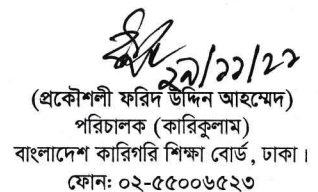 ২৯/১১/২২
(প্রকৌশলী ফরিদ উদ্দিন আহম্মেদ)
পরিচালক (কারিকুলাম)
বাংলাদেশ কারিগরি শিক্ষা বোর্ড, ঢাকা।
ফোন: ০২-৫৫০০৬৫২৩